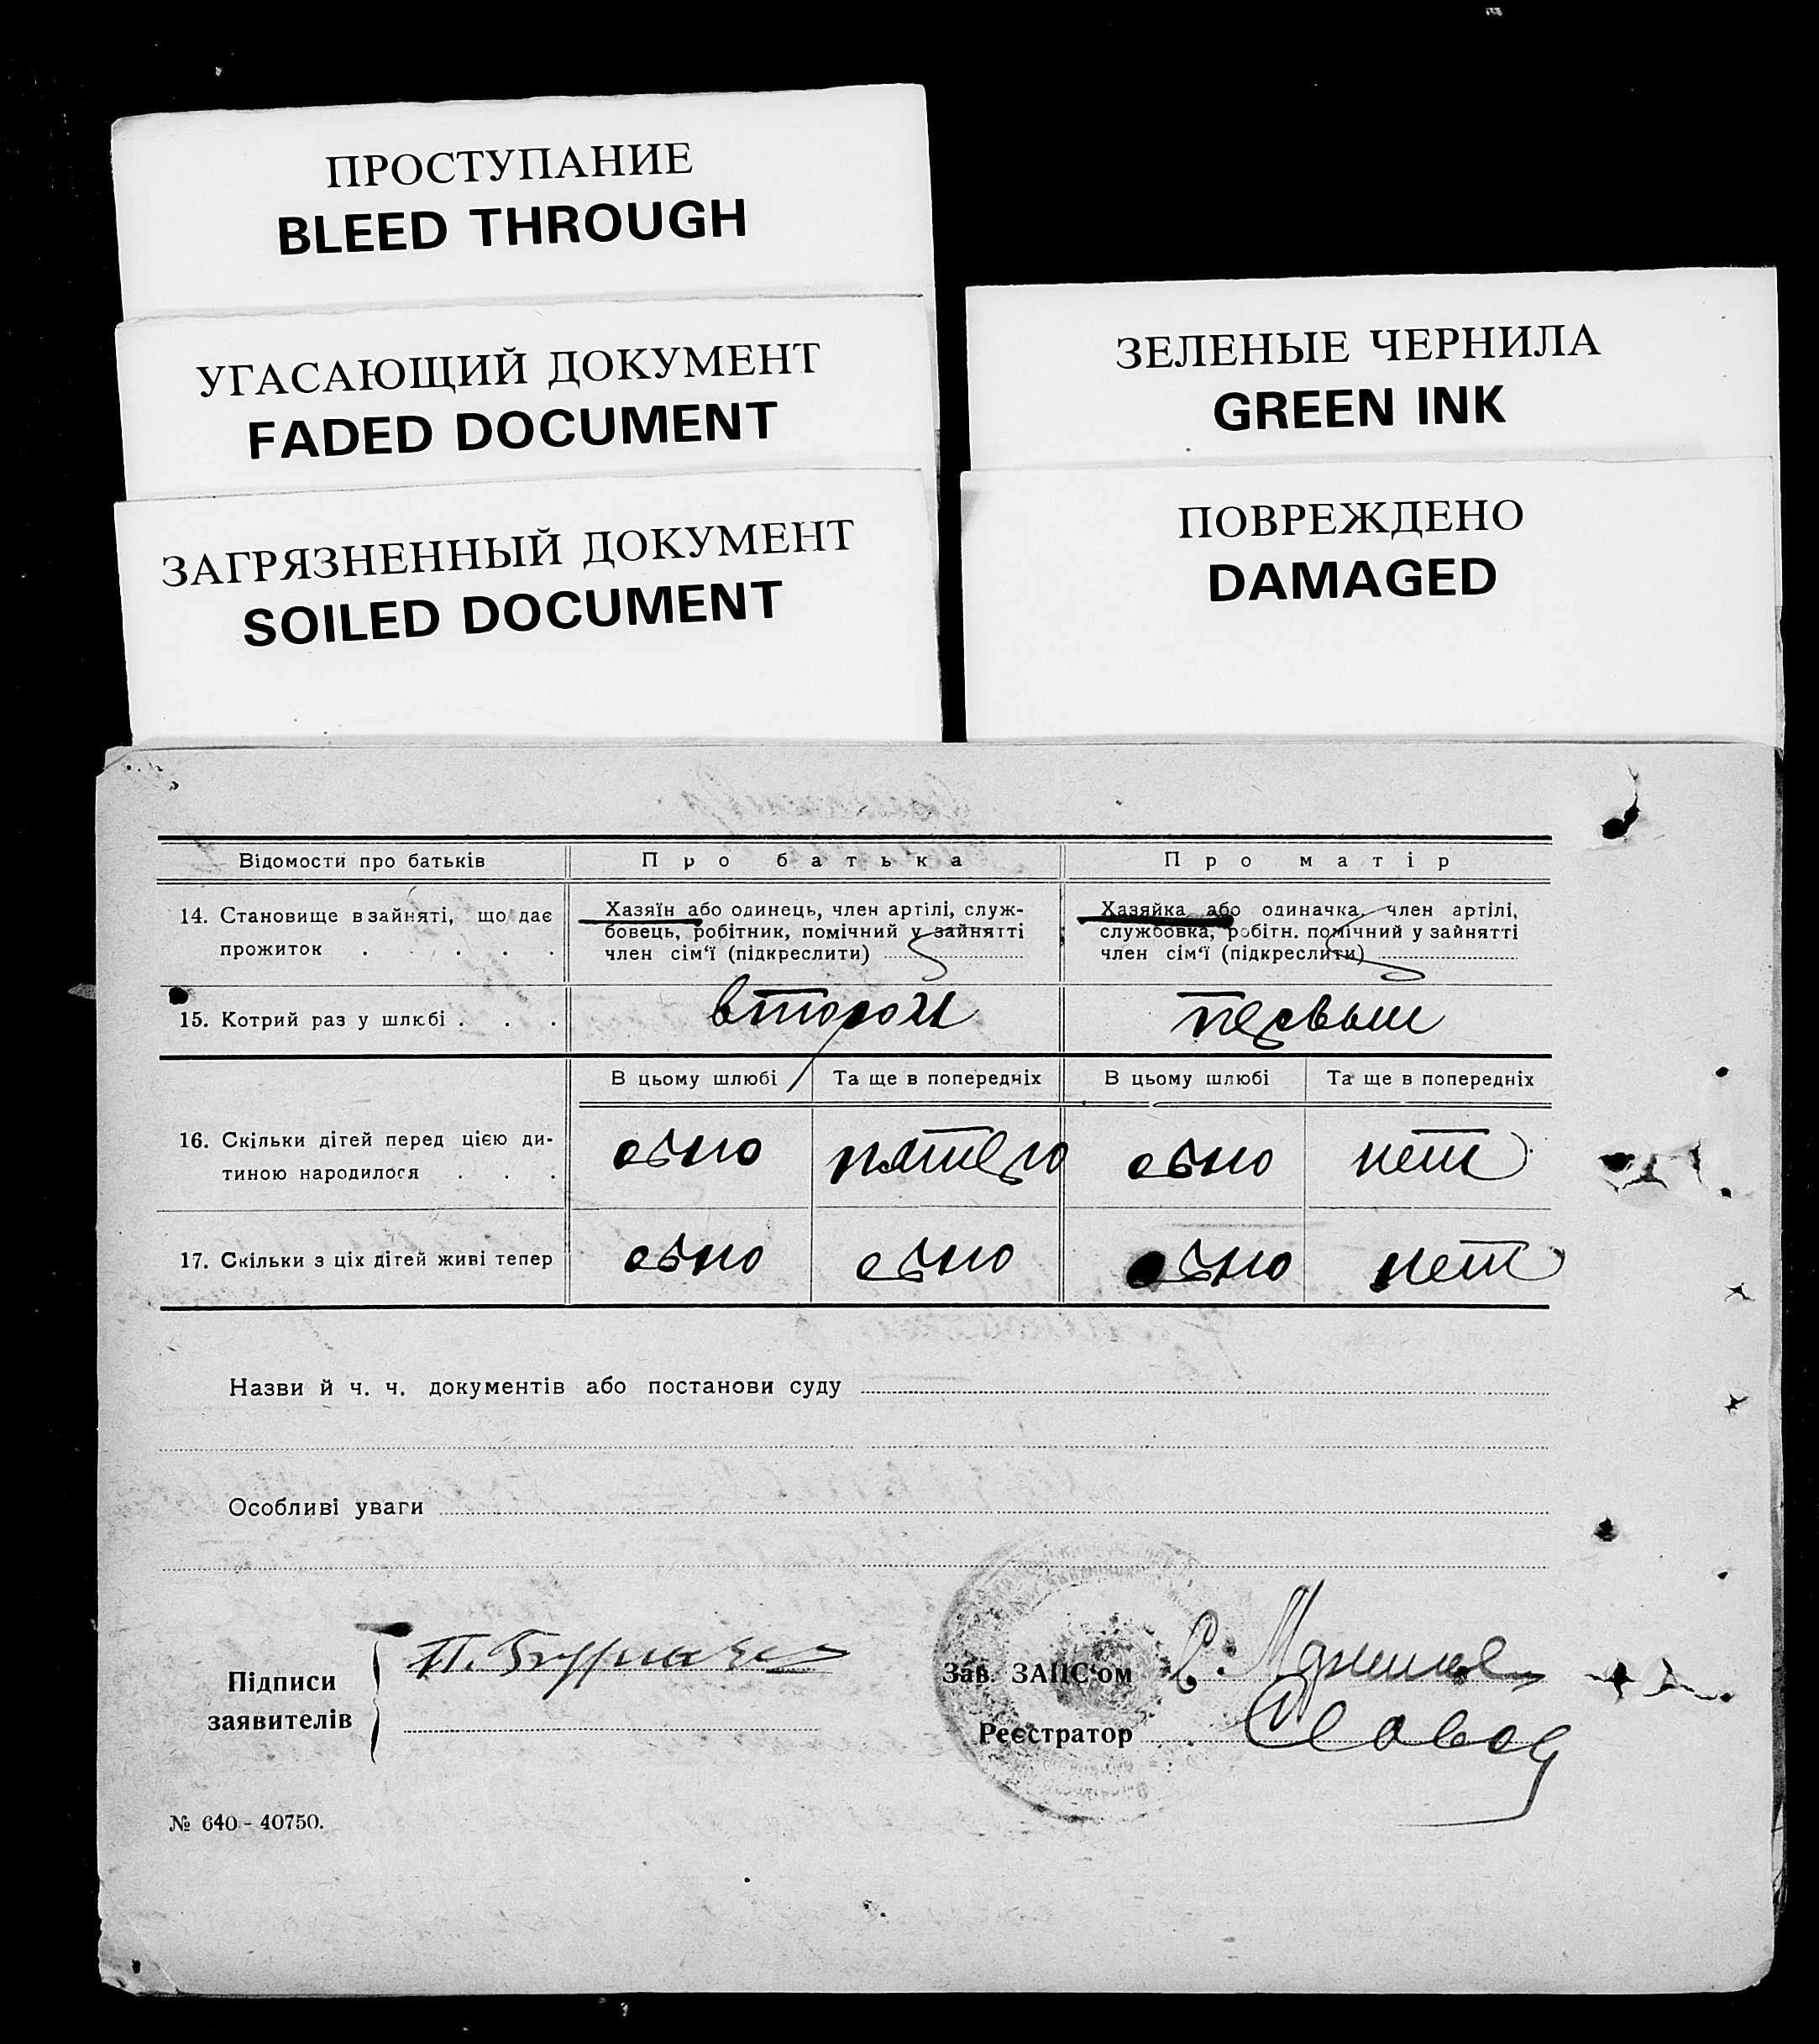 ПРОСТУПАНИЕ
BLEED THROUGH
УГАСАЮЩИЙ ДОКУМЕНТ
FADED DOCUMENT
ЗАГРЯЗНЕННЫЙ ДОКУМЕНТ
SOILED DOCUMENT
ЗЕЛЕНЫЕ ЧЕРНИЛА
GREEN INK
ПОВРЕЖДЕНО
DAMAGED
Відомости про батьків
Про батька
Про матір
14. Становище в зайняті, що дає
прожиток . . . . .
Хазяїн або одинець, член артілі, служ-
бовець, робітник, помічний у зайнятті
член сім‘ї (підкреслити)
Хазяйка або одиначка, член артілі,
службовка, робітн. помічний у зайнятті
член сім‘ї (підкреслити)
15. Котрий раз у шлюбі . . .
второй
первый
В цьому шлюбі
Та ще в попередніх
В цьому шлюбі
Та ще в попередніх
16. Скільки дітей перед цією ди-
тиною народилося . . .
одно
пятеро
одно
нет
17. Скільки з ціх дітей живі тепер
одно
одно
одно
нет
Назви й ч. ч. документів або постанови суду
Особливі уваги
Підписи
заявителів
П.
Зав. ЗАПС‘ом
Реєстратор
№ 640 - 40750.